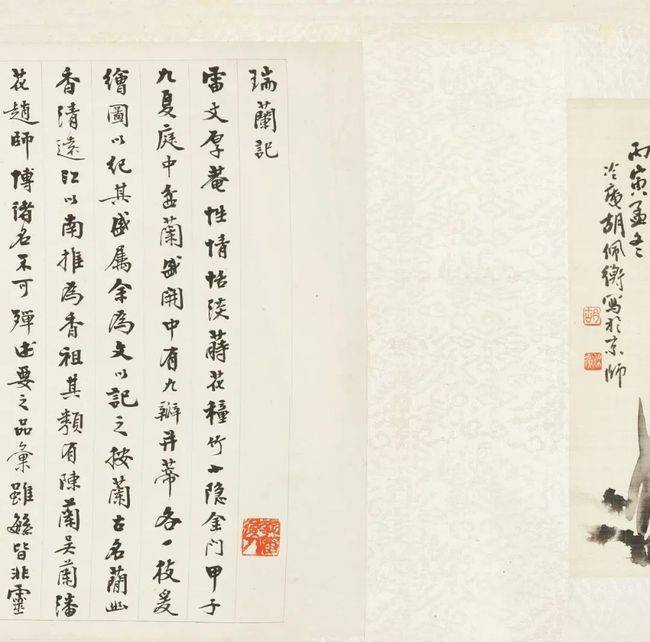 丙寅孟冬
冷庵胡佩衡寫於京師
瑞蘭記
雷丈厚菴性情恬淡蒔花種竹小隱金門甲子
九夏庭中盆蘭盛開中有九瓣并蒂各一枝爰
繪圖以紀其盛屬余為文以記之按蘭古名蕳幽
香清遠江以南推為香祖其類有陳蘭吳蘭潘
花趙師博諸名不可殫述要之品彙雖繁皆非靈